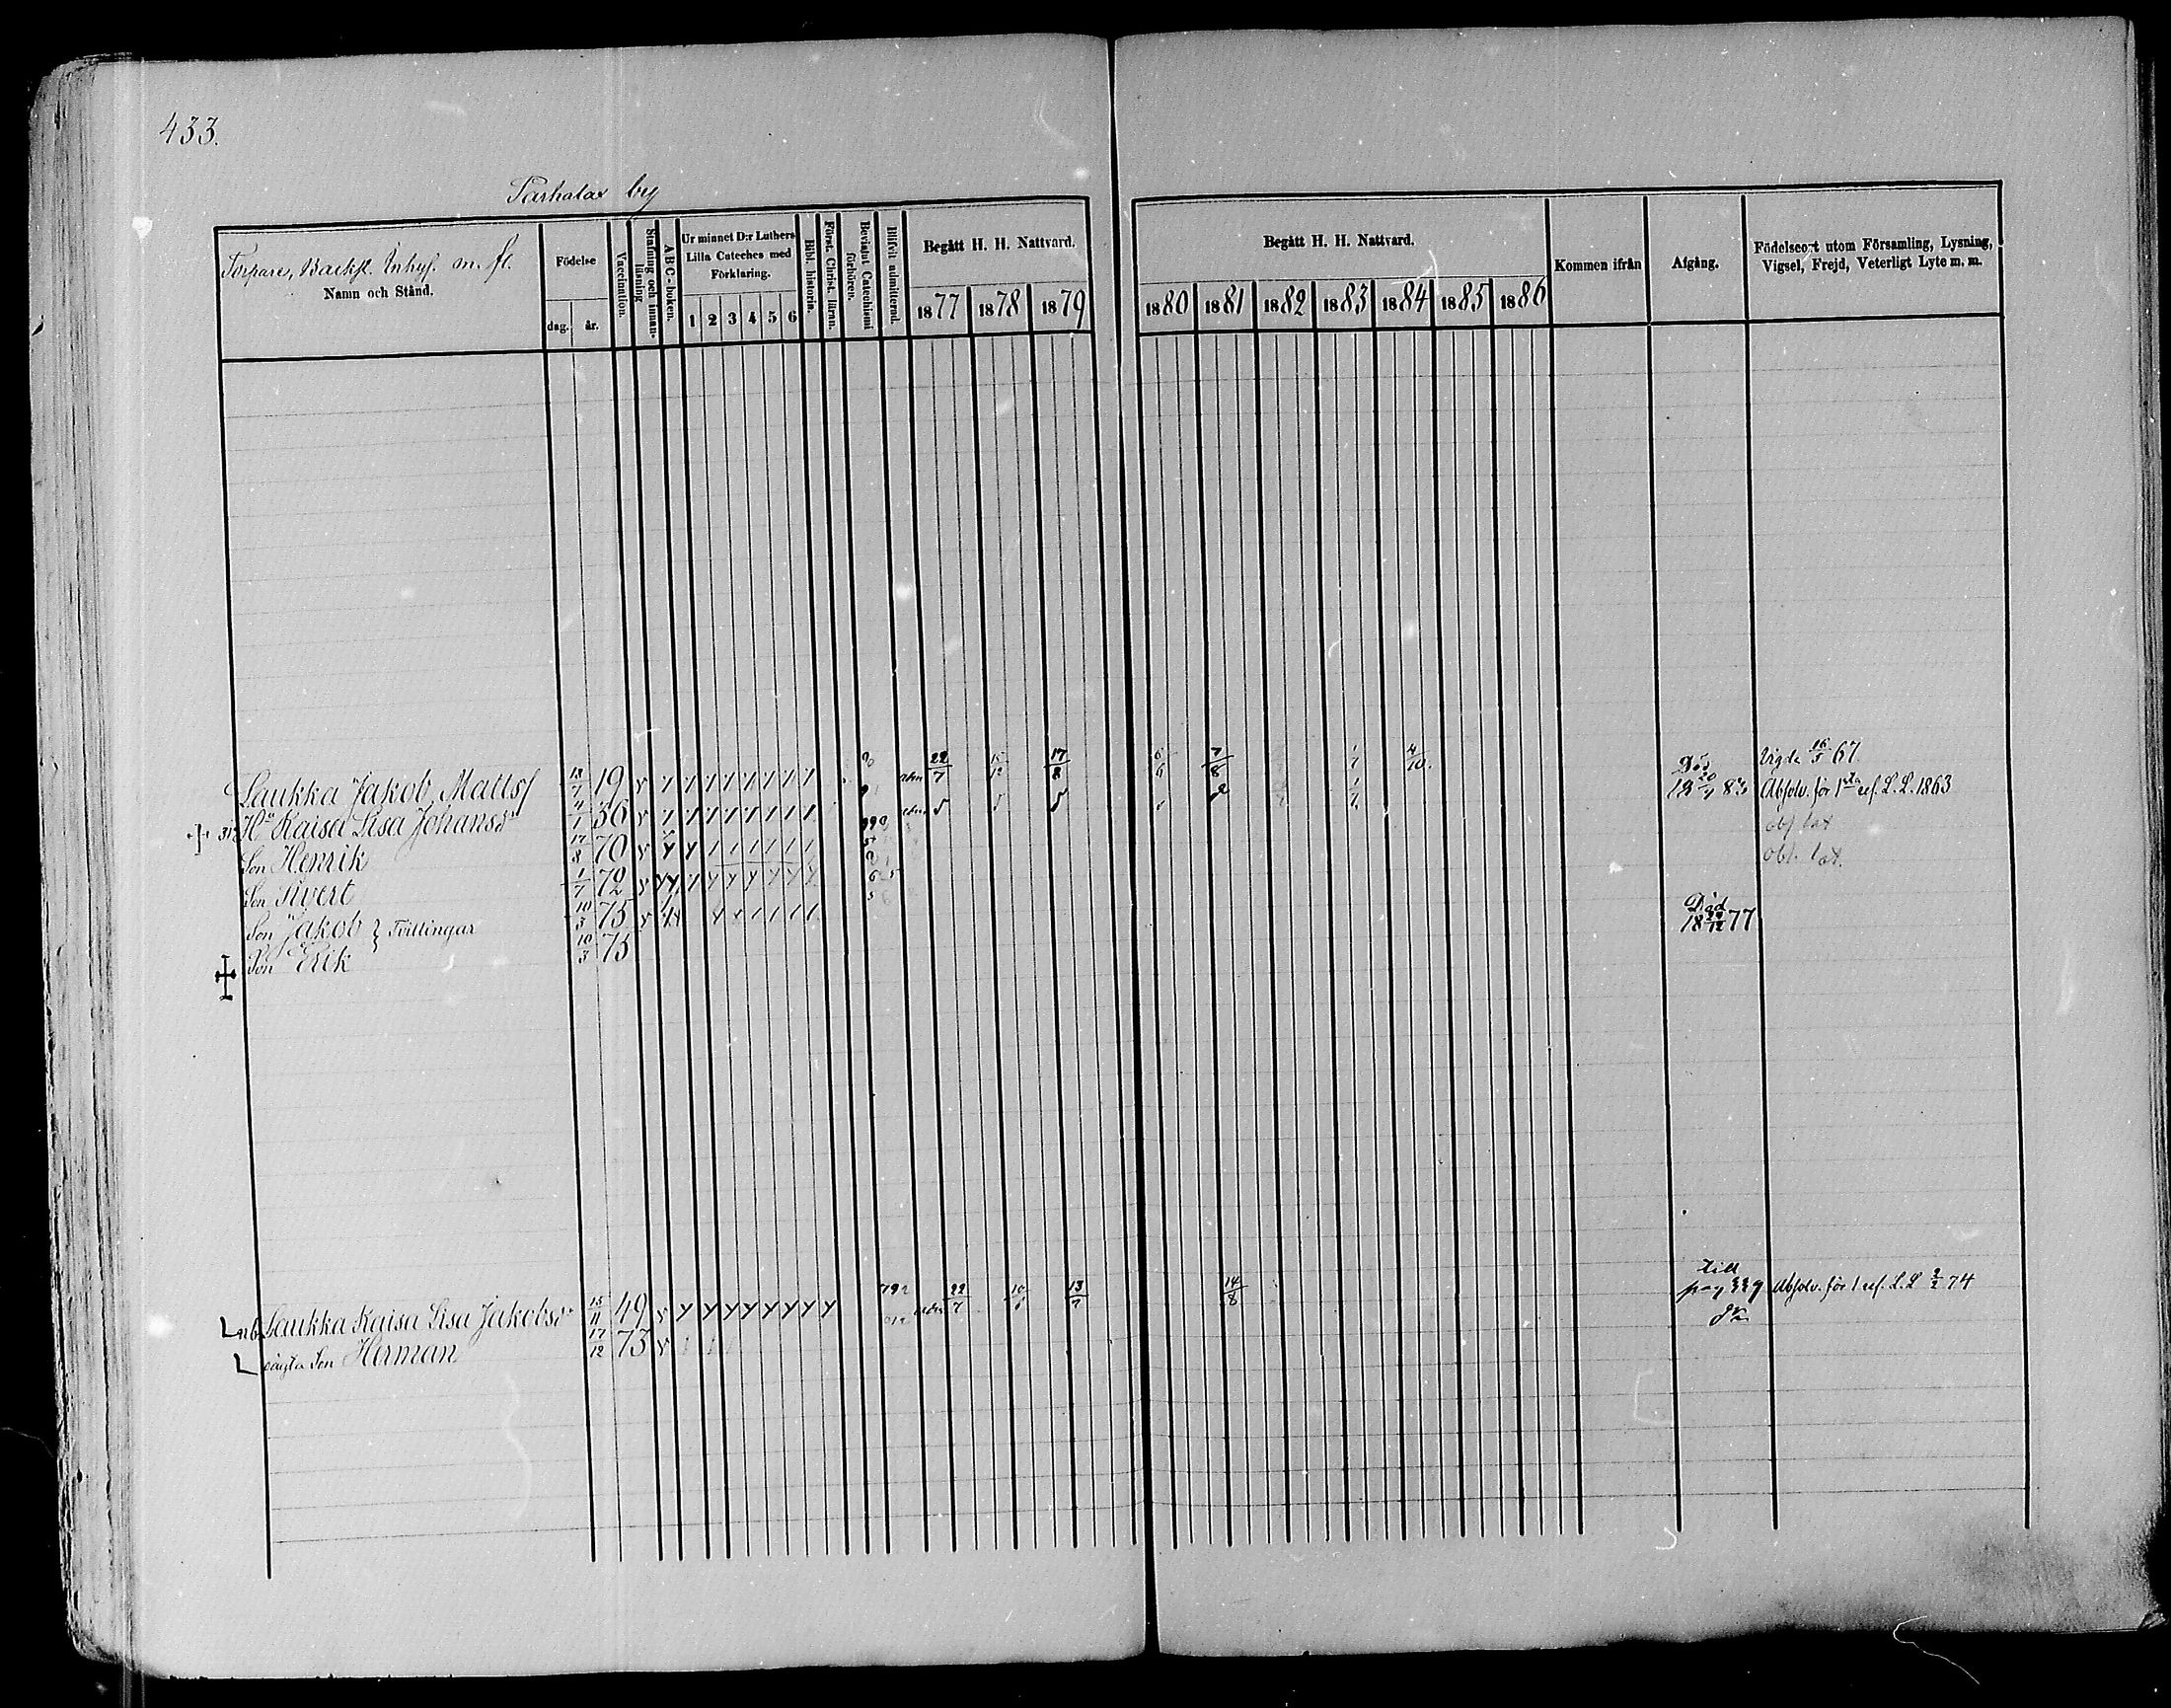 433.
by
Torpare, Backst. Inhys. m. fl.
Namn och Stånd.
Födelse
dag. år.
Vaccination.
Stafning och innanläsning
A B C-boken.
Ur minnet D:r Luthers Lilla Cateches med Förklaring.
1 2 3 4 5 6
Bibl. historia.
Först. Christ. läran.
Bevistat Catechismi förhören.
Blifvit admitterad.
Begått H. H. Nattvard.
1877 1878 1879
Begått H. H. Nattvard.
1880 1881 1882 1883 1884 1885 1886
Kommen ifrån
Afgång.
Födelseort utom Församling, Lysning, Vigsel, Frejd, Veterligt Lyte m. m.
Laukka Jakob Mattss 13/7 19 22/7 15/12 17/8 7/8 1/7 4/10 Vigda 16/5 67
Hu Kaisa Lisa Johansdr 4/1 36 Död 18 83 Absolv. för 1sta ref. L. L. 1863
Son Henrik 17/8 70
Son Sivert 1/7 72
Son Jakob } Tvillingar 10/3 75
Son Erik 10/3 75 Död 18 29/12 77
Laukka Kaisa Lisa Jakobsdr 15/11 49 792 22/7 13/7 14/8 till pag Absolv. för 1 ref. L. L 2/2 74
oägta Son Herman 17/12 73